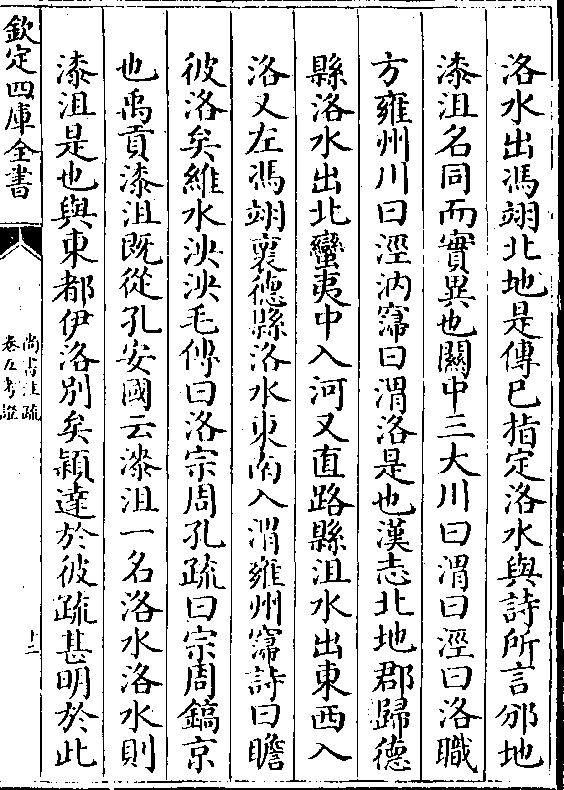 洛水出馮翊北地是傳已指定洛水與詩所言邠地
漆沮名同而實異也關中三大川曰渭曰涇曰洛職
方雍州川曰涇汭𥧲曰渭洛是也漢志北地郡歸德
縣洛水出北蠻夷中入河又直路縣沮水出東西入
洛又左馮翊襄德縣洛水東南入渭雍州𥧲詩曰瞻
彼洛矣維水泱泱毛傳曰洛宗周孔疏曰宗周鎬京
也禹貢漆沮既從孔安國云漆沮一名洛水洛水則
漆沮是也與東都伊洛別矣穎達於彼疏甚明於此
欽定四庫全書
尚書注疏
卷五考證
十三